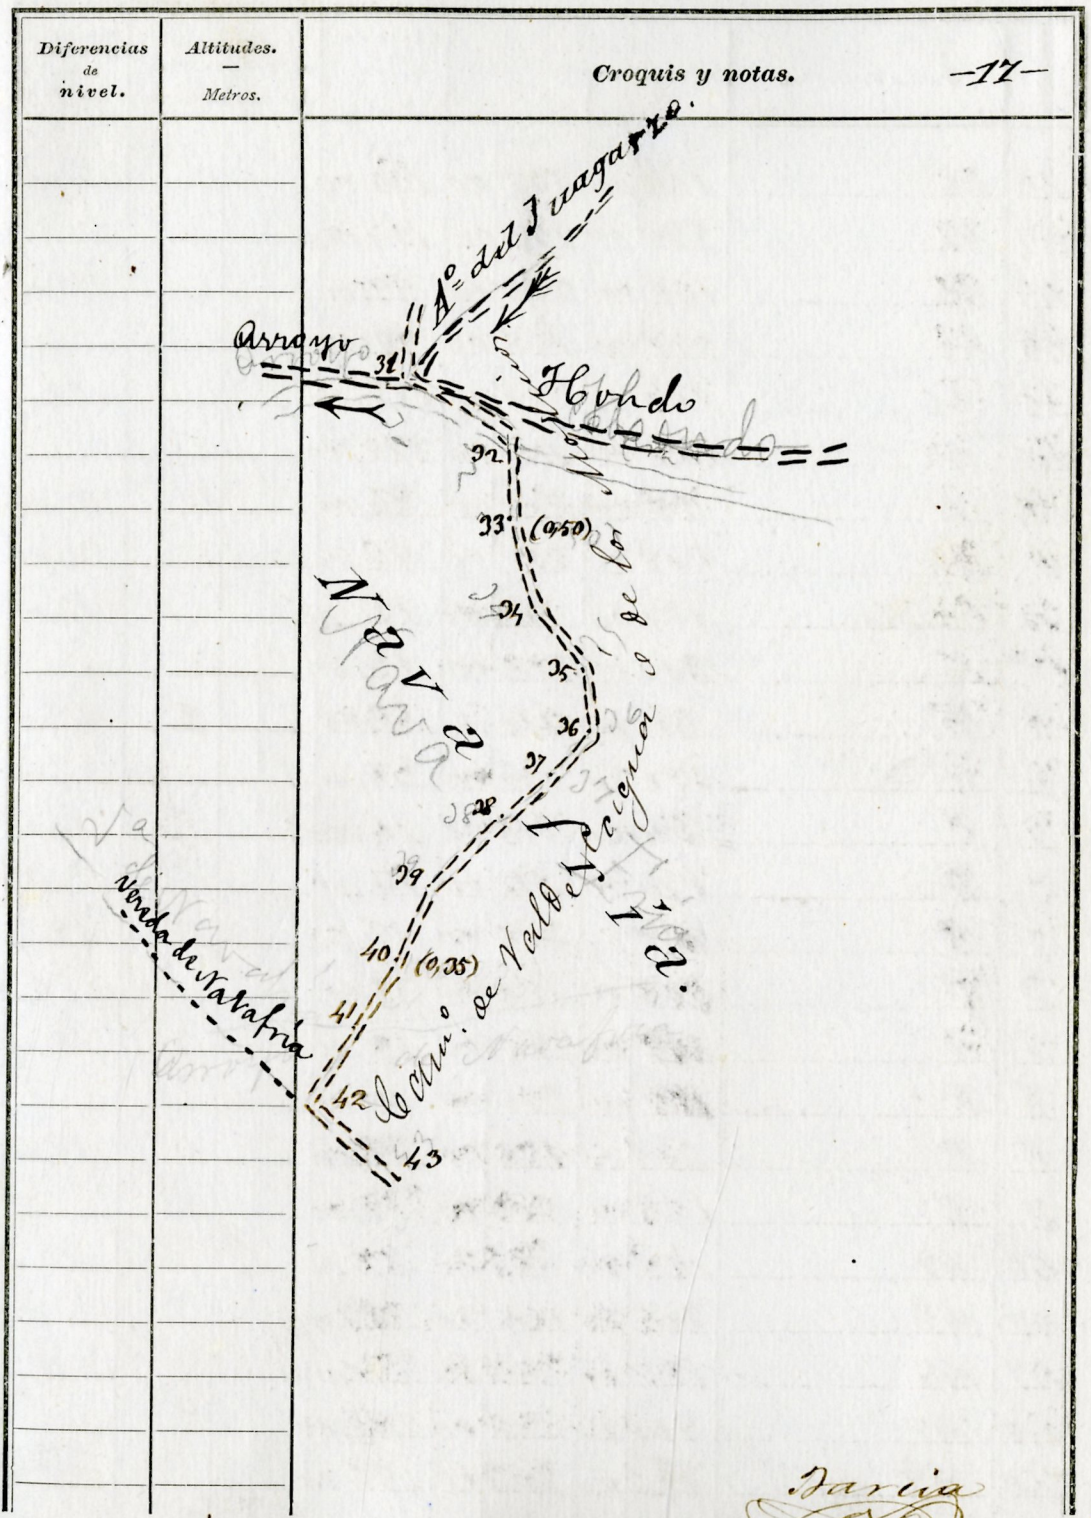 Diferencias
de
nivel.
Altitudes.
Metros.
Croquis y notas.
-17-
Aº del Juagarzo.
Arroyo
Hondo
31
32
33 (0,50)
34
35
36
37
38
39
40 (0,35)
41
42
43
Nava
fría.
Camº. de Valdescoiquia o de los
Vereda de Navafría
Barcia